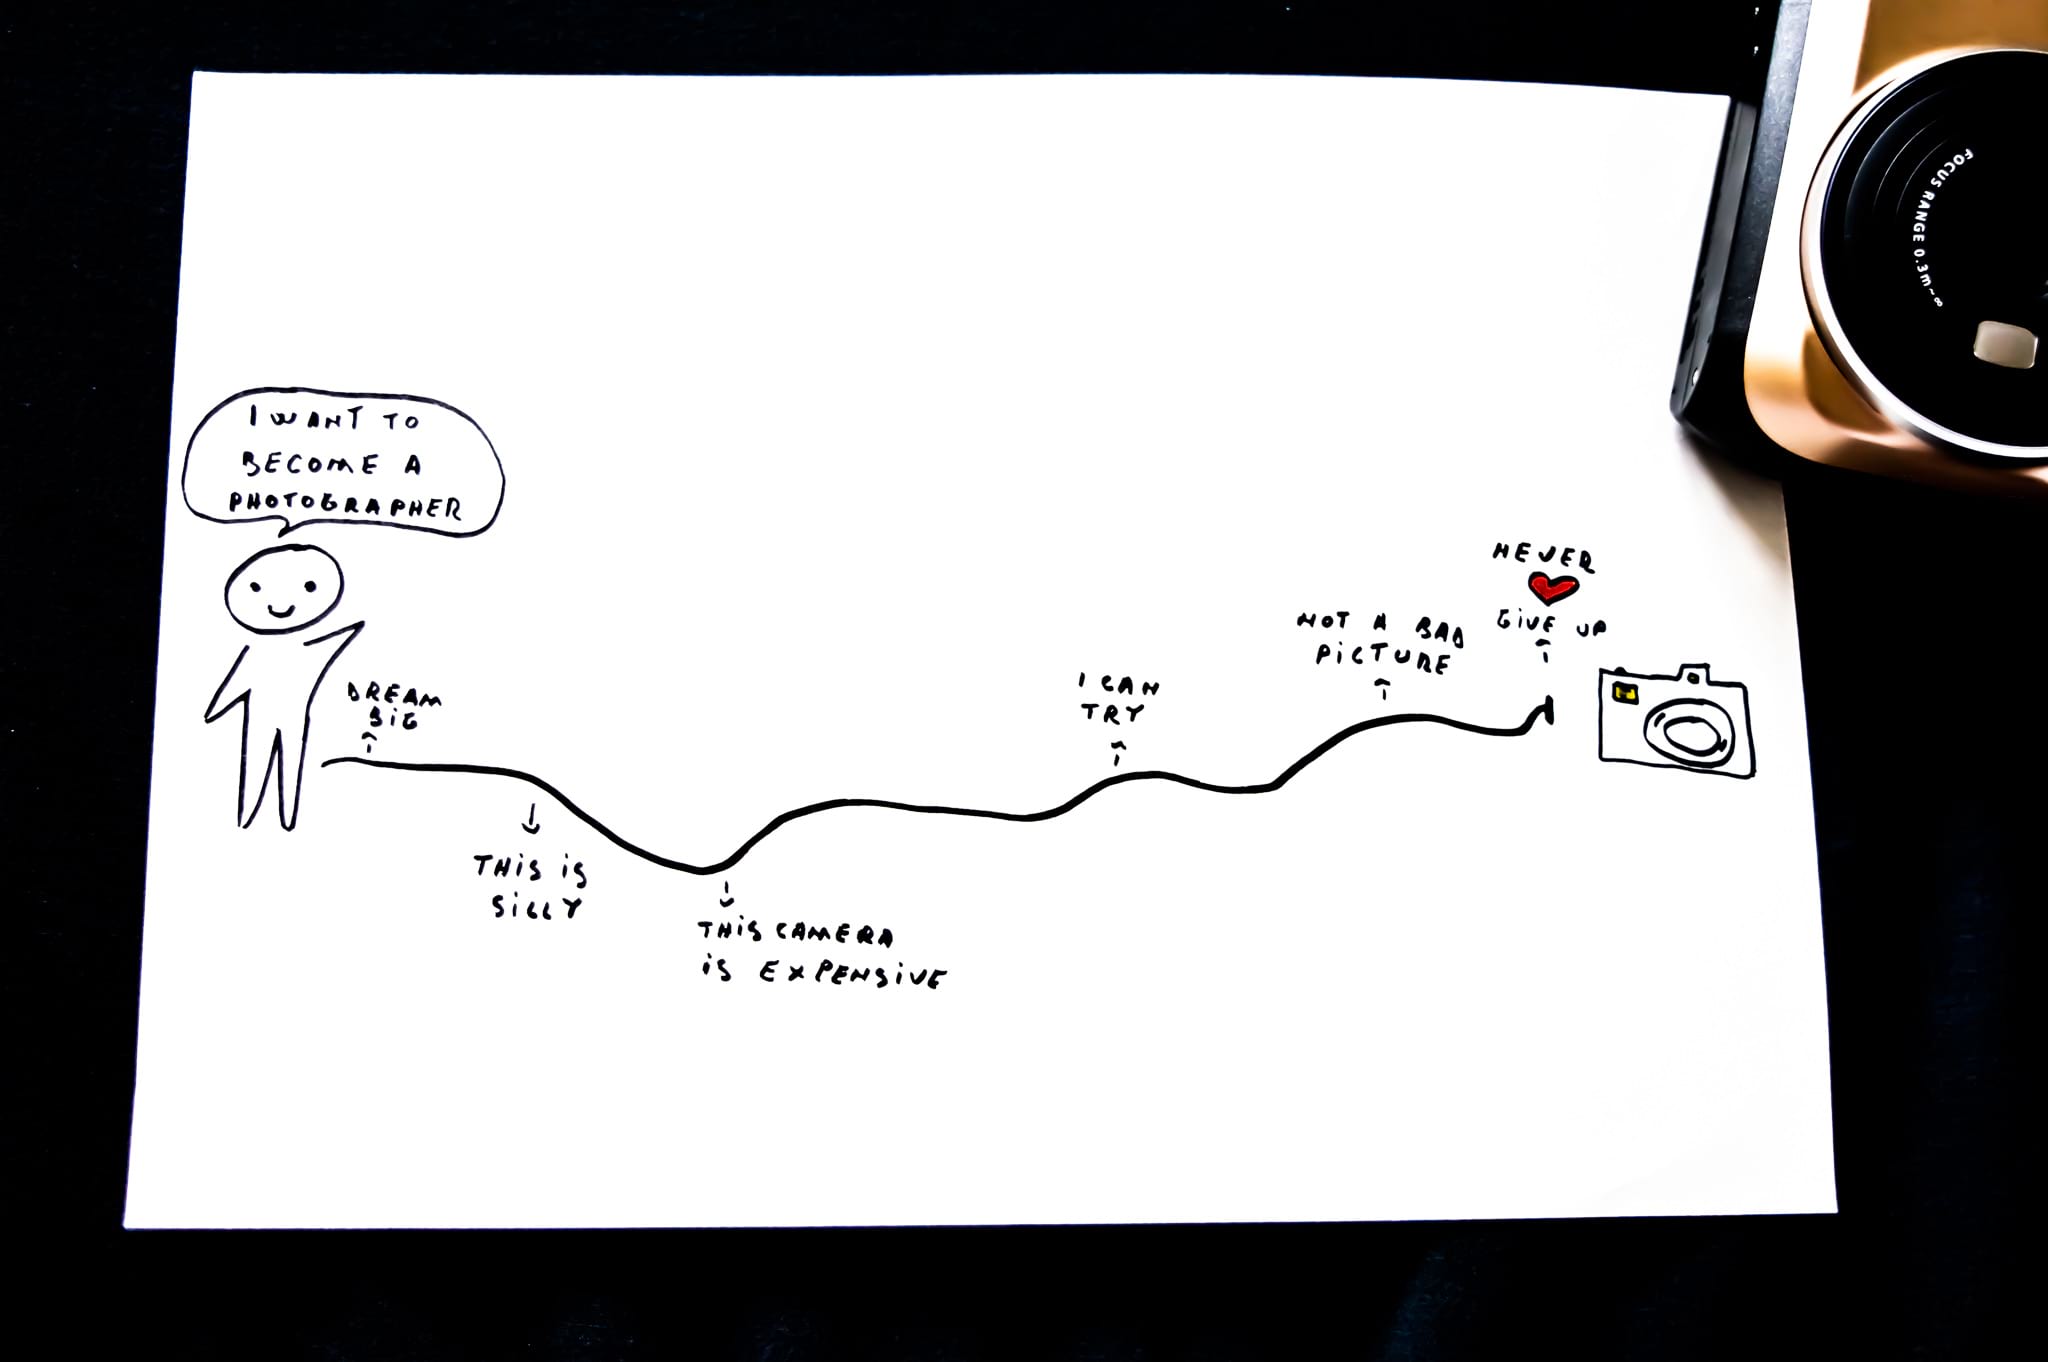 I WANT TO
BECOME A
PHOTOGRAPHER
DREAM
BiG
THiS iS
SiLLY
THiS CAMERA
iS EXPENSiVE
I CAN
TRY
NOT A BAD
PiCTURE
NEVER
GiVE UP
FOCUS RANGE 0.3m~∞